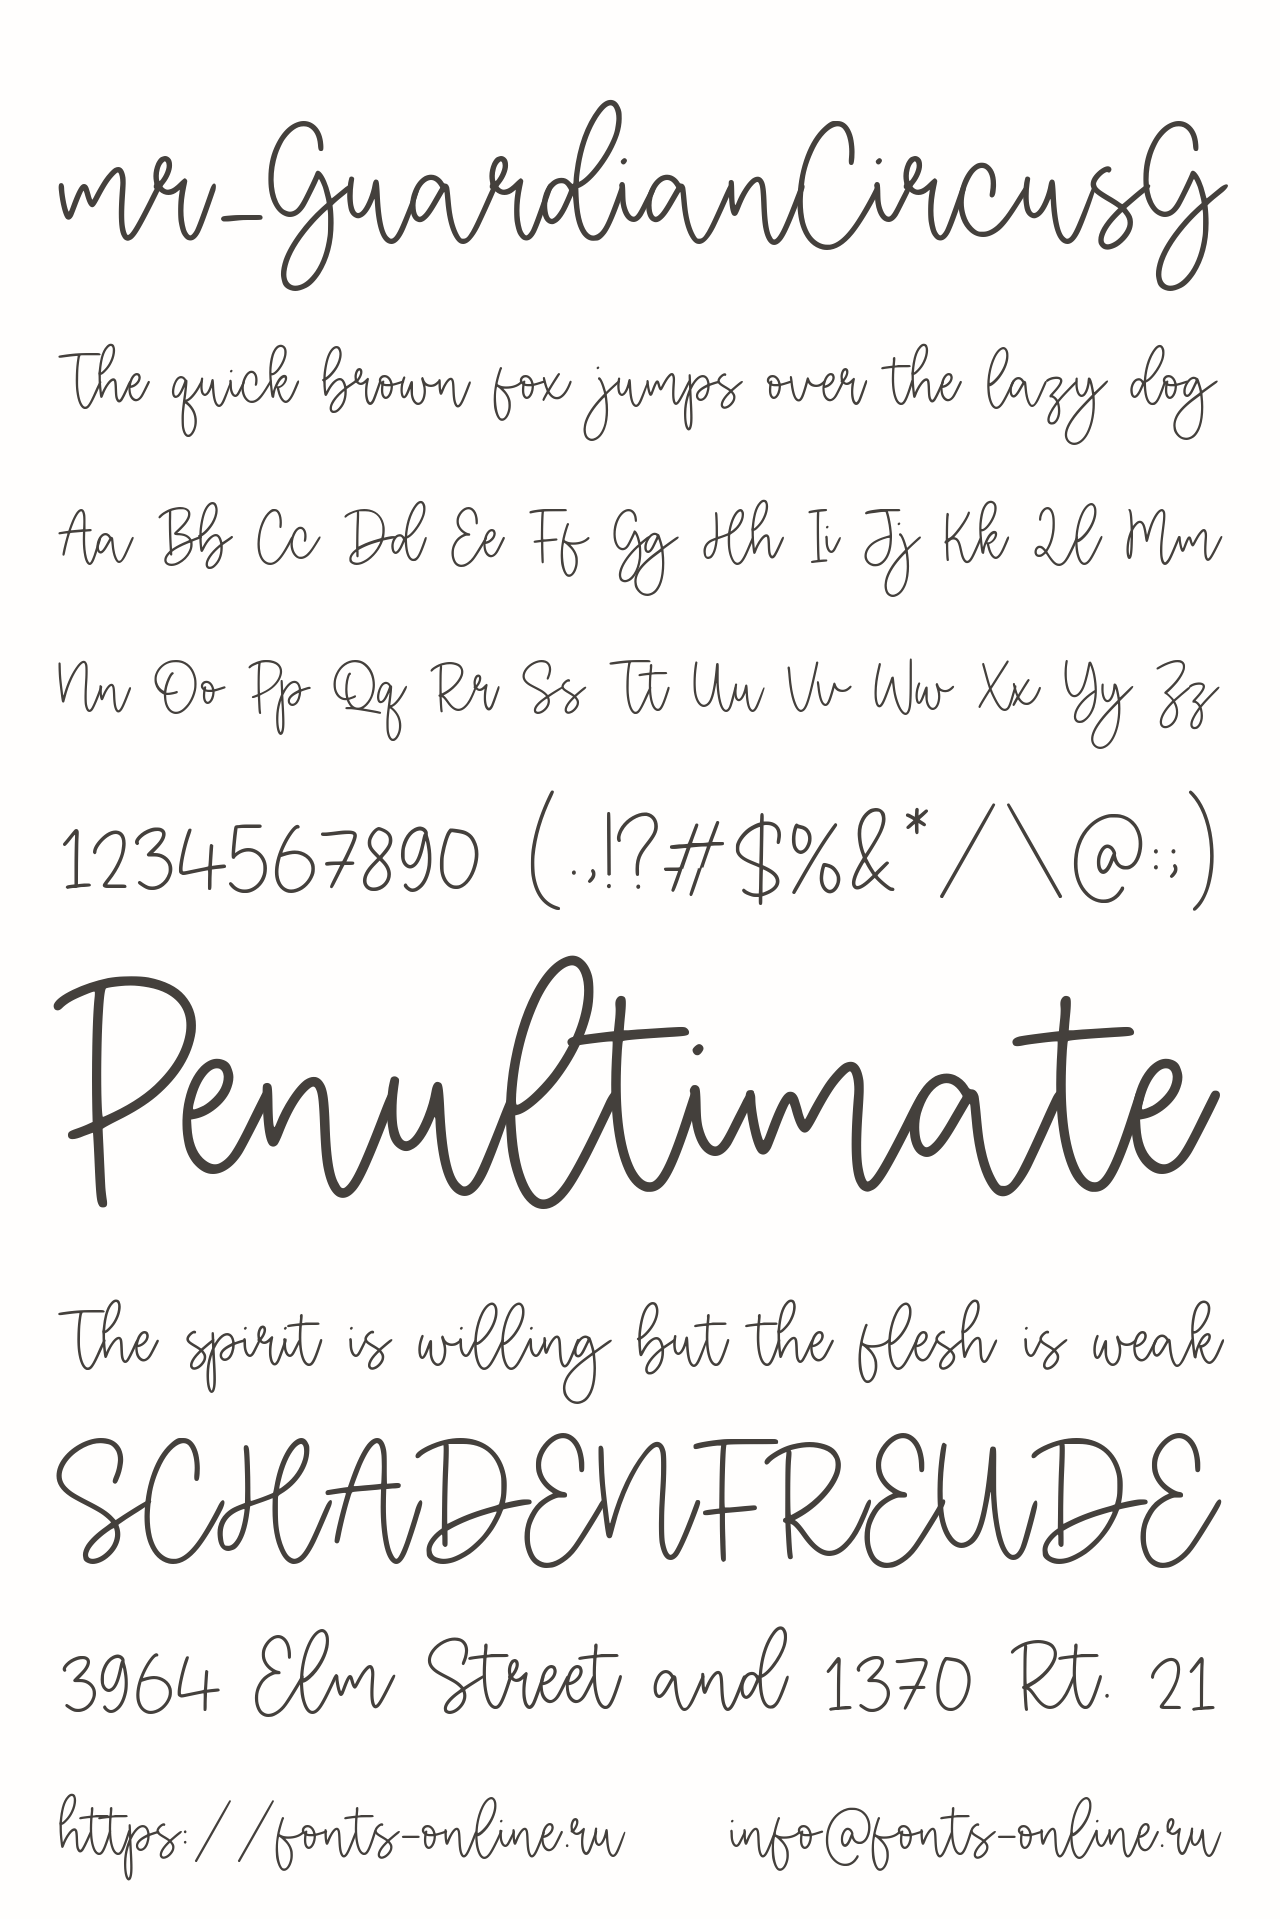 mr-GuardianCircusG
The quick brown fox jumps over the lazy dog
Aa Bb Cc Dd Ee Ff Gg Hh Ii Jj Kk Ll Mm
Nn Oo Pp Qq Rr Ss Tt Uu Vv Ww Xx Yy Zz
1234567890 (.,!?#$%&*/\@:;)
Penultimate
The spirit is willing but the flesh is weak
SCHADENFREUDE
3964 Elm Street and 1370 Rt. 21
https://fonts-online.ru info@fonts-online.ru